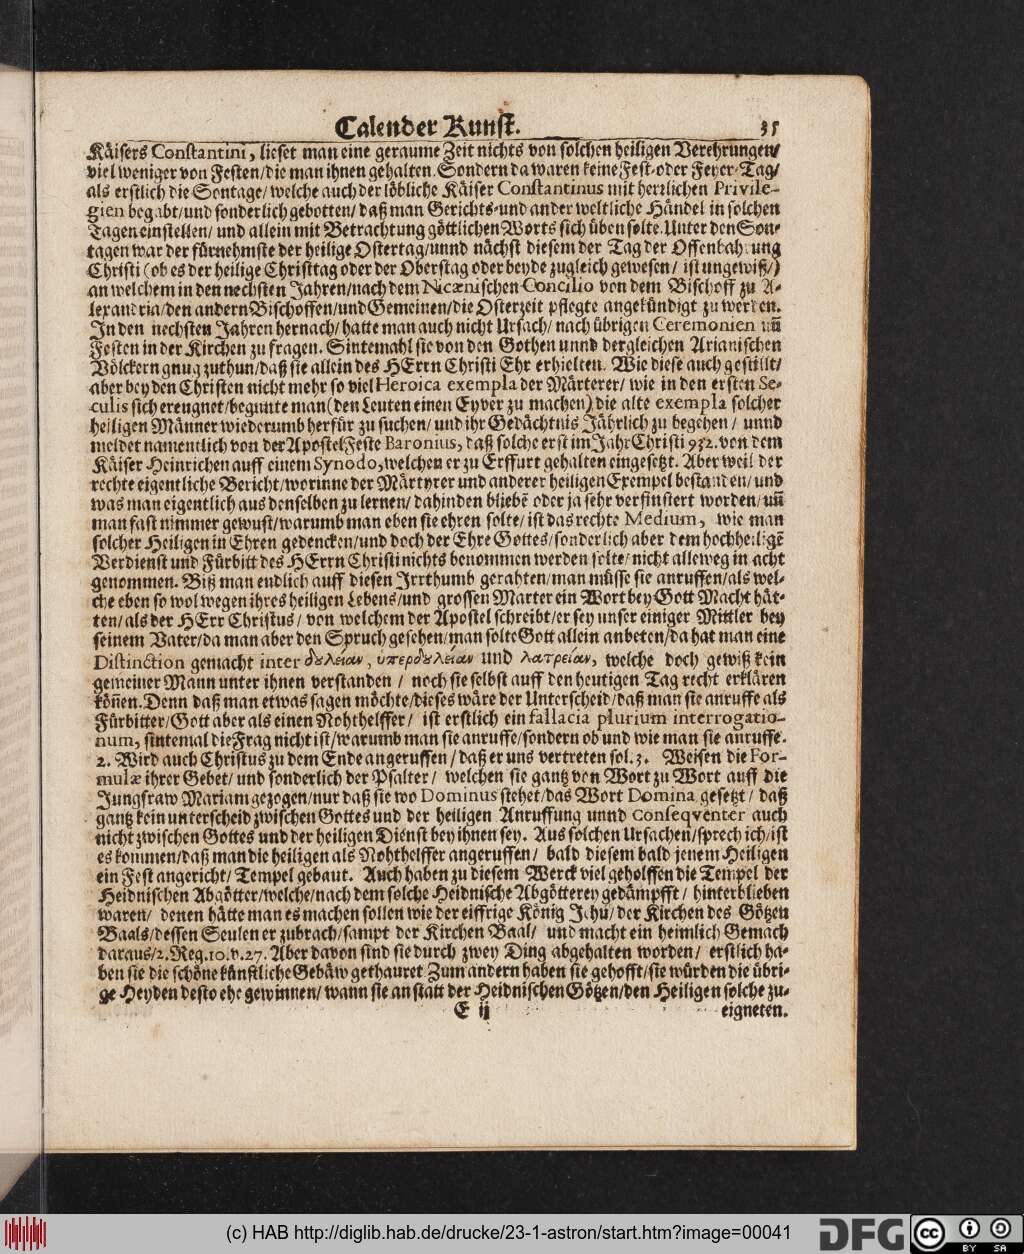 Calender Kunst. 35
Käisers Constantini, lieset man eine geraume Zeit nichts von solchen heiligen Verehrungen/
viel weniger von Festen/die man ihnen gehalten. Sondern da waren keine Fest- oder Feyer-Tag/
als erstlich die Sontage/welche auch der löbliche Käiser Constantinus mit hertzlichen Privile-
gien begabt/und sonderlich gebotten/daß man Gerichts- und ander weltliche Händel in solchen
Tagen einstellen/ und allein mit Betrachtung göttlichen Worts sich üben solte. Unter den Son-
tagen war der fürnehmste der heilige Ostertag/unnd nächst diesem der Tag der Offenbahrung
Christi (ob es der heilige Christtag oder der Oberstag oder beyde zugleich gewesen/ ist ungewiß/)
an welchem in den nechsten Jahren/nach dem Nicænischen Concilio von dem Bischoff zu A-
lexandria/den andern Bischoffen/und Gemeinen/die Osterzeit pflegte angekündigt zu werden.
In den nechsten Jahren hernach/hatte man auch nicht Ursach/nach übrigen Ceremonien uñ
Festen in der Kirchen zu fragen. Sintemahl sie von den Gothen unnd dergleichen Arianischen
Völckern gnug zuthun/daß sie allein des HErrn Christi Ehr erhielten. Wie diese auch gestillt/
aber bey den Christen nicht mehr so viel Heroica exempla der Märterer/ wie in den ersten Se-
culis sich ereugnet/begunte man (den Leuten einen Eyver zu machen) die alte exempla solcher
heiligen Männer wiederumb herfür zu suchen/ und ihr Gedächtnis Jährlich zu begehen/ unnd
meldet namentlich von der Apostel Feste Baronius, daß solche erst im Jahr Christi 932. von dem
Käiser Heinrichen auff einem Synodo, welchen er zu Erffurt gehalten eingesetzt. Aber weil der
rechte eigentliche Bericht/worinne der Märtyrer und anderer heiligen Exempel bestanden/und
was man eigentlich aus denselben zu lernen/dahinden bliebẽ oder ja sehr verfinstert worden/uñ
man fast nimmer gewust/warumb man eben sie ehren solte/ist das rechte Medium, wie man
solcher Heiligen in Ehren gedencken/und doch der Ehre Gottes/sonderlich aber dem hochheiligẽ
Verdienst und Fürbitt des HErrn Christi nichts benommen werden solte/nicht alleweg in acht
genommen. Biß man endlich auff diesen Irrthumb gerahten/man müsse sie anruffen/als wel-
che eben so wol wegen ihres heiligen Lebens/und grossen Marter ein Wort bey Gott Macht hät-
ten/als der HErr Christus/ von welchem der Apostel schreibt/er sey unser einiger Mittler bey
seinem Vater/da man aber den Spruch gesehen/man solte Gott allein anbeten/da hat man eine
Distinction gemacht inter δουλείαν, ὑπερδουλείαν und λατρείαν, welche doch gewiß kein
gemeiner Mann unter ihnen verstanden / noch sie selbst auff den heutigen Tag recht erklären
köñen. Denn daß man etwas sagen möchte/dieses wäre der Unterscheid/daß man sie anruffe als
Fürbitter/Gott aber als einen Nohthelffer/ ist erstlich ein fallacia plurium interrogatio-
num, sintemal die Frag nicht ist/warumb man sie anruffe/sondern ob und wie man sie anruffe.
2. Wird auch Christus zu dem Ende angeruffen/daß er uns vertreten sol. 3. Weisen die For-
mulæ ihrer Gebet/und sonderlich der Psalter/ welchen sie gantz von Wort zu Wort auff die
Jungfraw Mariam gezogen/nur daß sie wo Dominus stehet/das Wort Domina gesetzt/ daß
gantz kein unterscheid zwischen Gottes und der heiligen Anruffung unnd conseqventer auch
nicht zwischen Gottes und der heiligen Dienst bey ihnen sey. Aus solchen Ursachen/sprech ich/ist
es kommen/daß man die heiligen als Nohthelffer angeruffen/ bald diesem bald jenem Heiligen
ein Fest angericht/Tempel gebaut. Auch haben zu diesem Werck viel geholffen die Tempel der
Heidnischen Abgötter/welche/nach dem solche Heidnische Abgötterey gedämpfft/hinterblieben
waren/ denen hätte man es machen sollen wie der eiffrige König Jehu/der Kirchen des Götzen
Baals/dessen Seulen er zubrach/sampt der Kirchen Baal/ und macht ein heimlich Gemach
daraus/2. Reg. 10. v. 27. Aber davon sind sie durch zwey Ding abgehalten worden/ erstlich ha-
ben sie die schöne künstliche Gebäw gethauret Zum andern haben sie gehofft/sie würden die übri-
ge Heyden desto ehe gewinnen/wann sie an statt der Heidnischen Götzen/den Heiligen solche zu-
E ij eigneten.
(c) HAB http://diglib.hab.de/drucke/23-1-astron/start.htm?image=00041
DFG
cc
BY SA